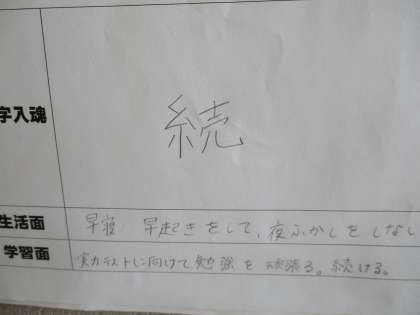 字入魂
続
生活面
早寝 早起きをして、夜ふかしをしない
学習面
実力テストに向けて勉強を頑張る。続ける。